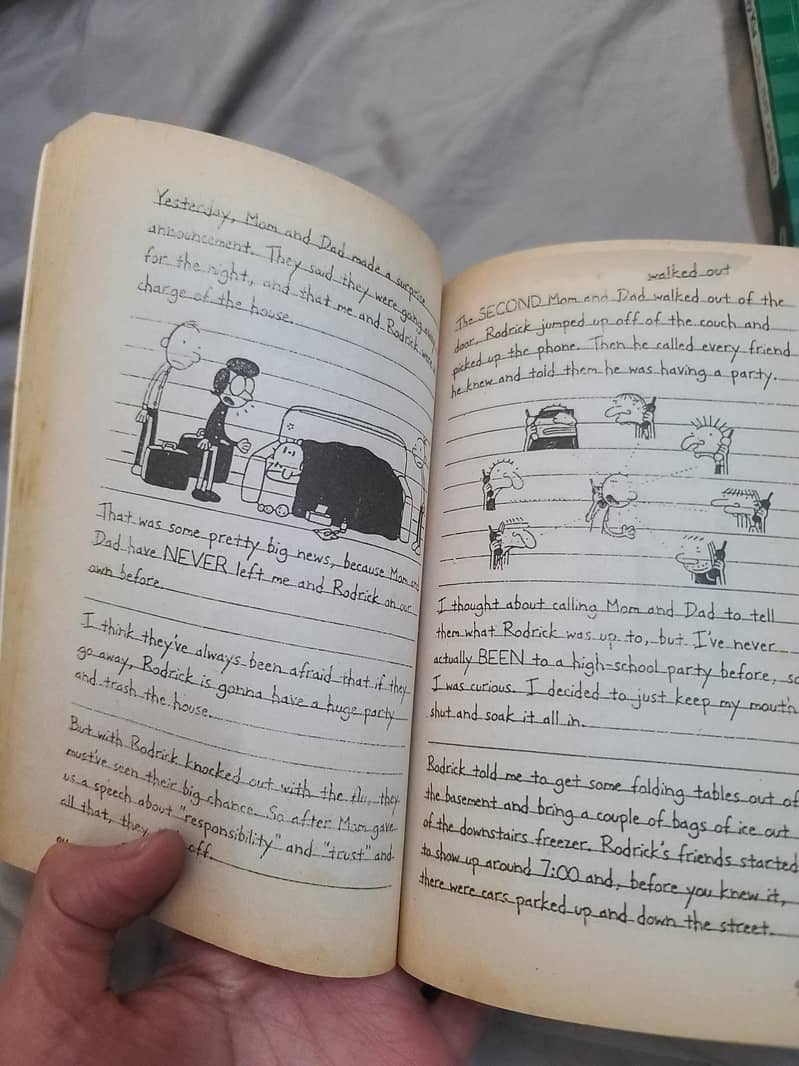 Yesterday, Mom and Dad made a surprise
announcement. They said they were going away
for the night, and that me and Rodrick were
charge of the house.
That was some pretty big news, because Mom and
Dad have NEVER left me and Rodrick on our
own before.
I think they've always been afraid that if they
go away, Rodrick is gonna have a huge party
and trash the house.
But with Rodrick knocked out with the flu, they
must've seen their big chance. So after Mom gave
us a speech about "responsibility" and "trust" and
all that, they off.
walked out
The SECOND Mom and Dad walked out of the
door, Rodrick jumped up off of the couch and
picked up the phone. Then he called every friend
he knew and told them he was having a party.
I thought about calling Mom and Dad to tell
them what Rodrick was up to, but I've never
actually BEEN to a high-school party before, so
I was curious. I decided to just keep my mouth
shut and soak it all in.
Rodrick told me to get some folding tables out of
the basement and bring a couple of bags of ice out
of the downstairs freezer. Rodrick's friends started
to show up around 7:00 and, before you knew it,
there were cars parked up and down the street.